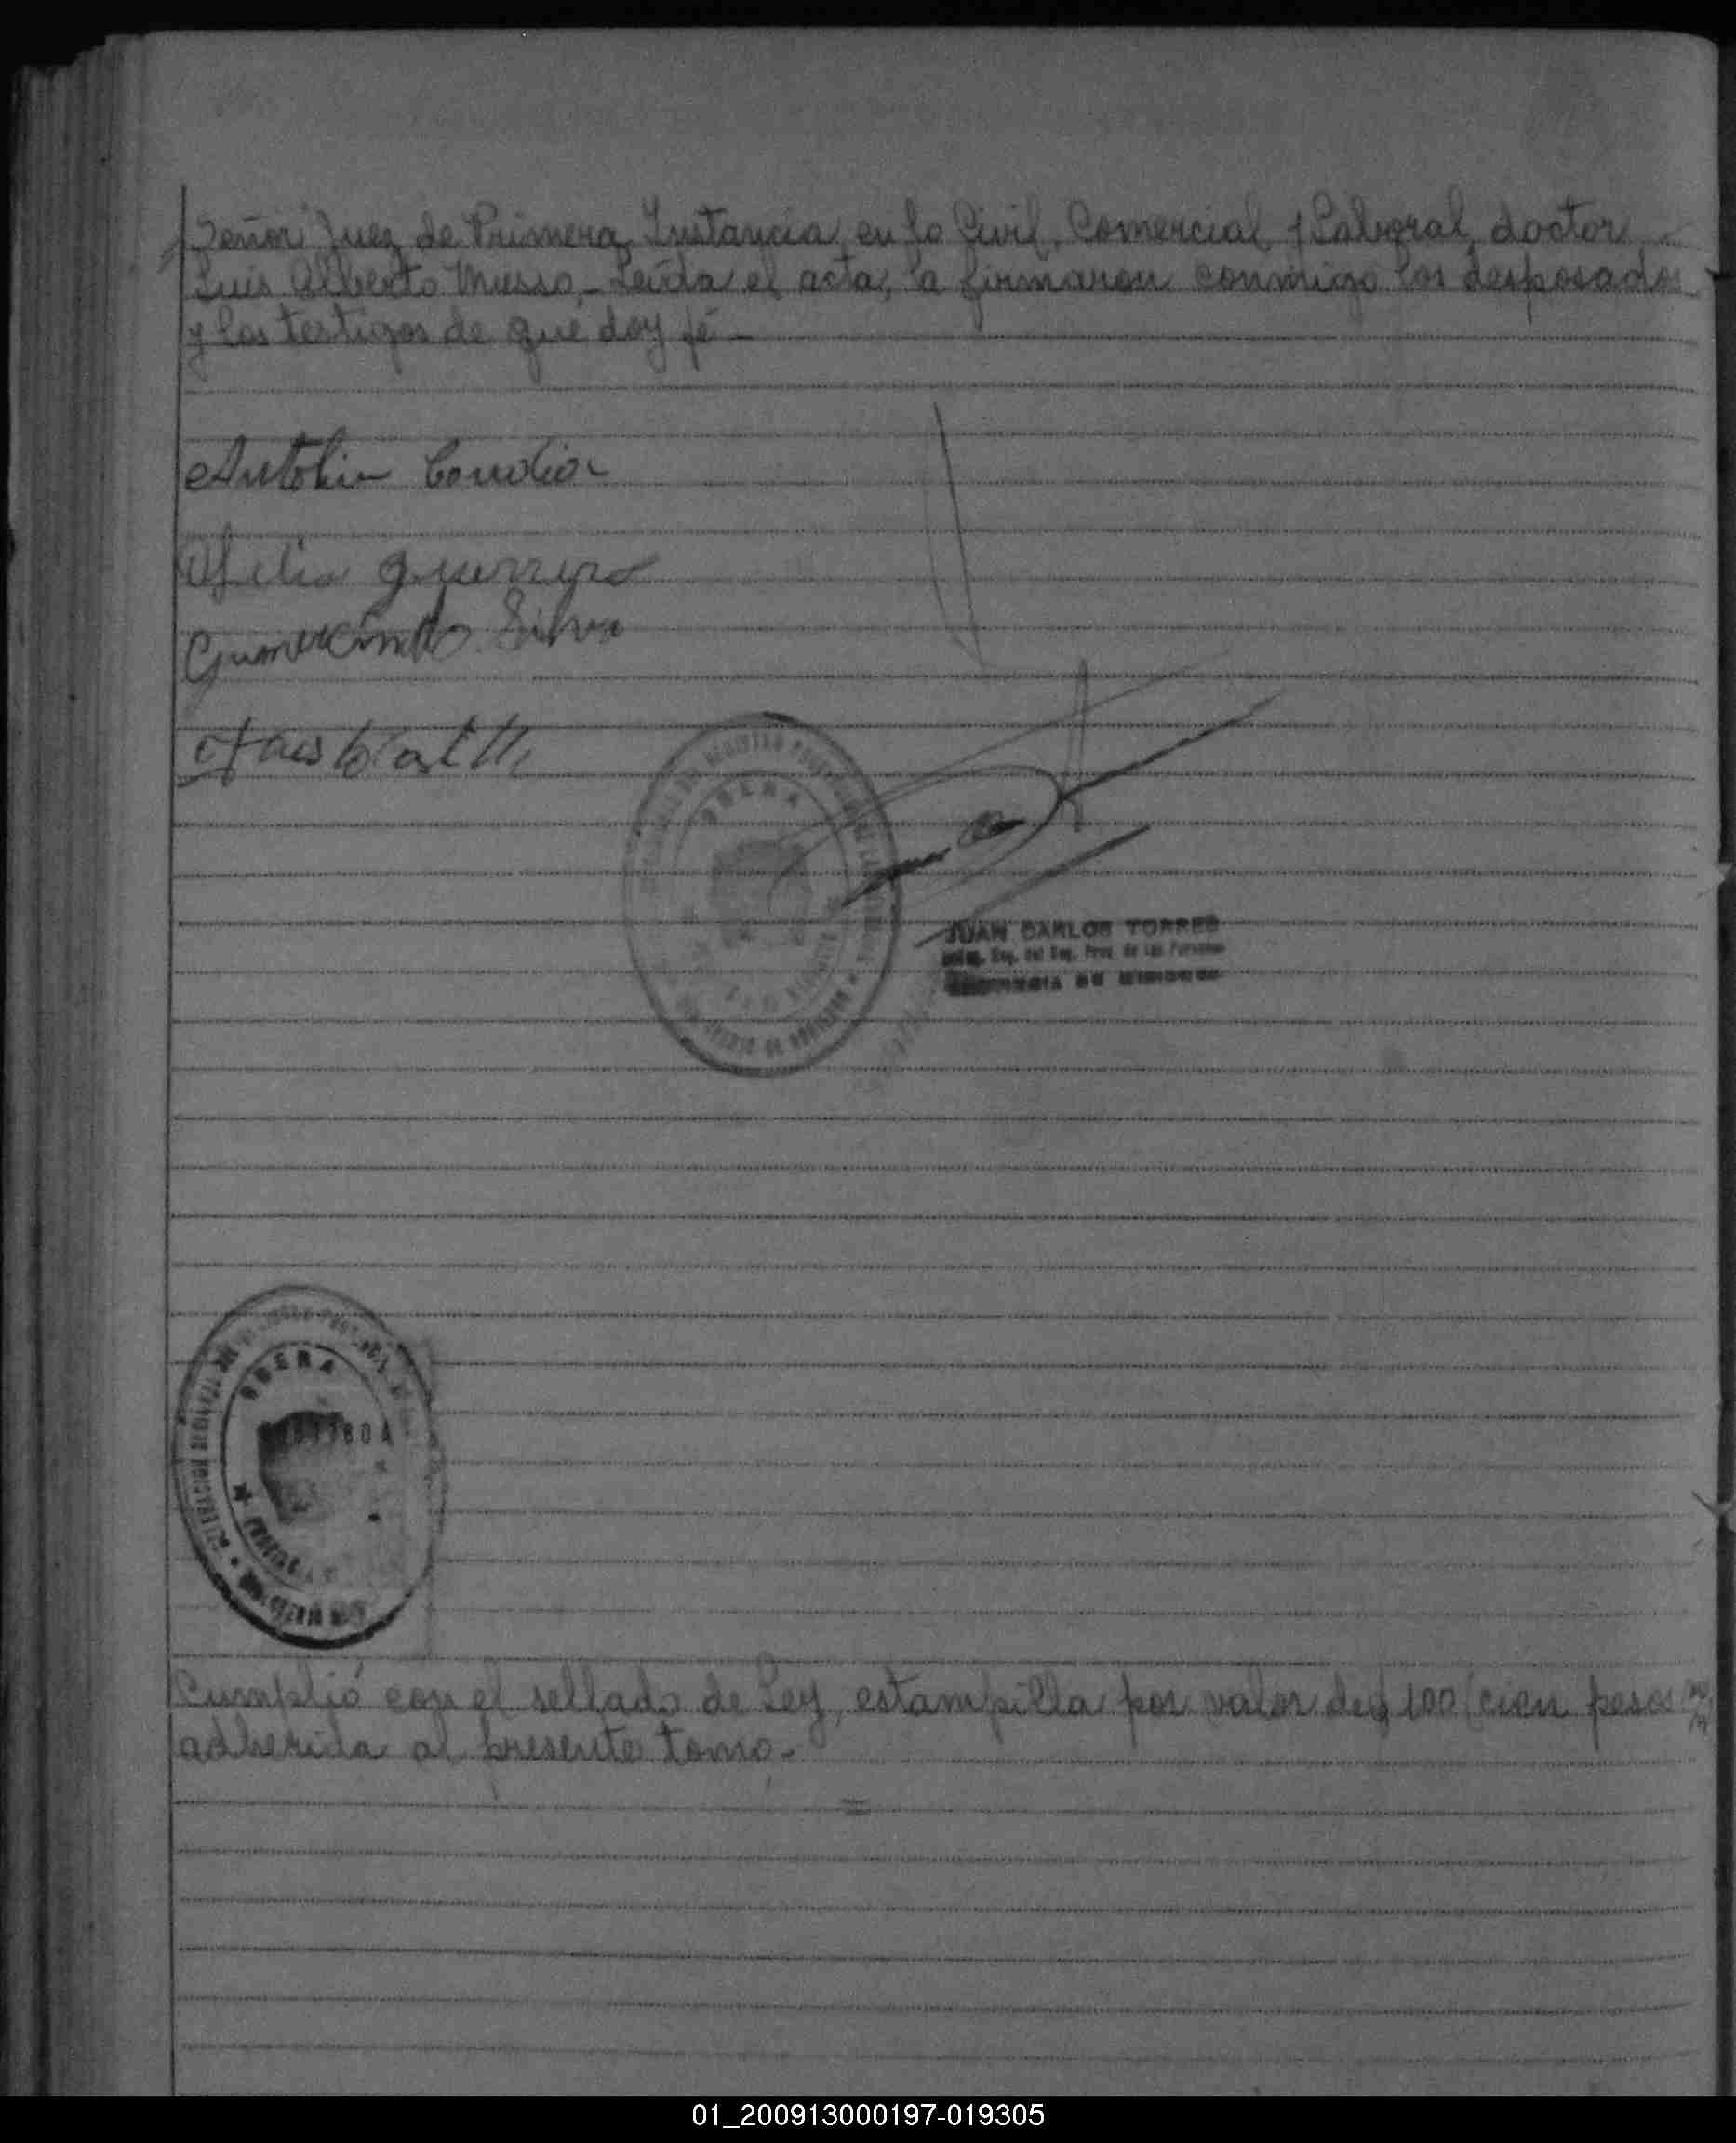 Señor Juez de Primera Instancia en lo Civil, Comercial y Laboral, doctor
Luis Alberto Musso.- Leída el acta, la firmaron conmigo los desposados
y los testigos de que doy fé -
Ofelia Guerrero
Gumercindo Silva
OBERA
JUAN CARLOS TORRES
OBERA
Cumplió con el sellado de Ley, estampilla por valor de $ 100 (cien pesos m/n
adherida al presente tomo.-
01_200913000197-019305